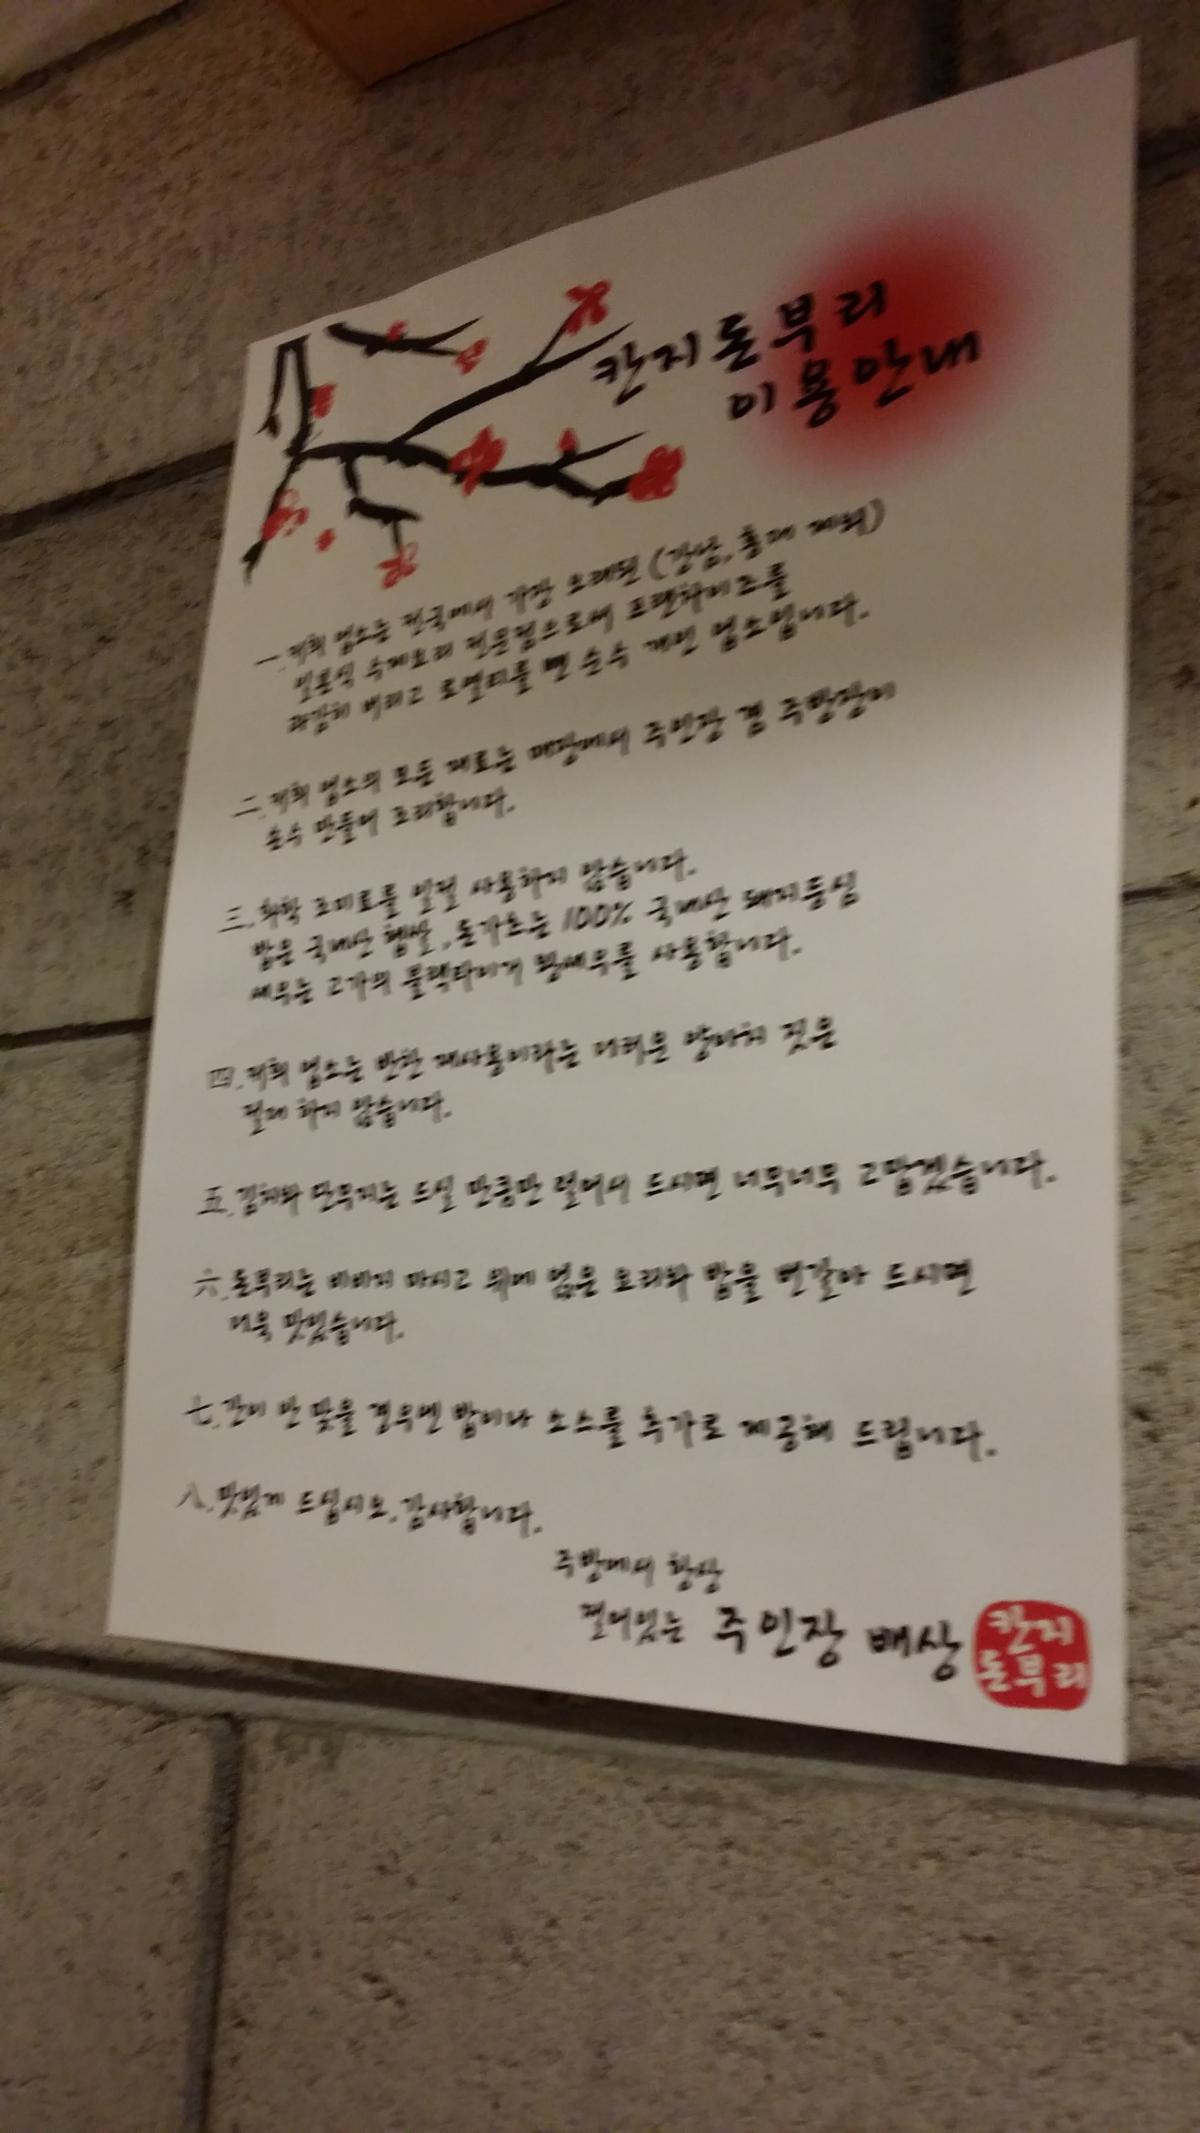 칸지돈부리
이용안내
一.저희 업소는 전국에서 가장 오래된 (강남,홍대 제외)
일본식 수제요리 전문점으로써 프랜차이즈를
과감히 버리고 로열티를 뺀 순수 개인 업소입니다.
二.저희 업소의 모든 재료는 매장에서 주인장 겸 주방장이
손수 만들어 조리합니다.
三.화학 조미료를 일절 사용하지 않습니다.
밥은 국내산 햅쌀,돈가스는 100% 국내산 돼지등심
새우는 고가의 블랙타이거 왕새우를 사용합니다.
四.저희 업소는 반찬 재사용이라는 더러운 양아치 짓은
절대 하지 않습니다.
五.김치와 단무지는 드실 만큼만 덜어서 드시면 너무너무 고맙겠습니다.
六.돈부리는 비비지 마시고 위에 얹은 요리와 밥을 번갈아 드시면
더욱 맛있습니다.
七.간이 안 맞을 경우엔 밥이나 소스를 추가로 제공해 드립니다.
八.맛있게 드십시오.감사합니다.
주방에서 항상
쩔어있는 주인장 배상
칸지
돈부리